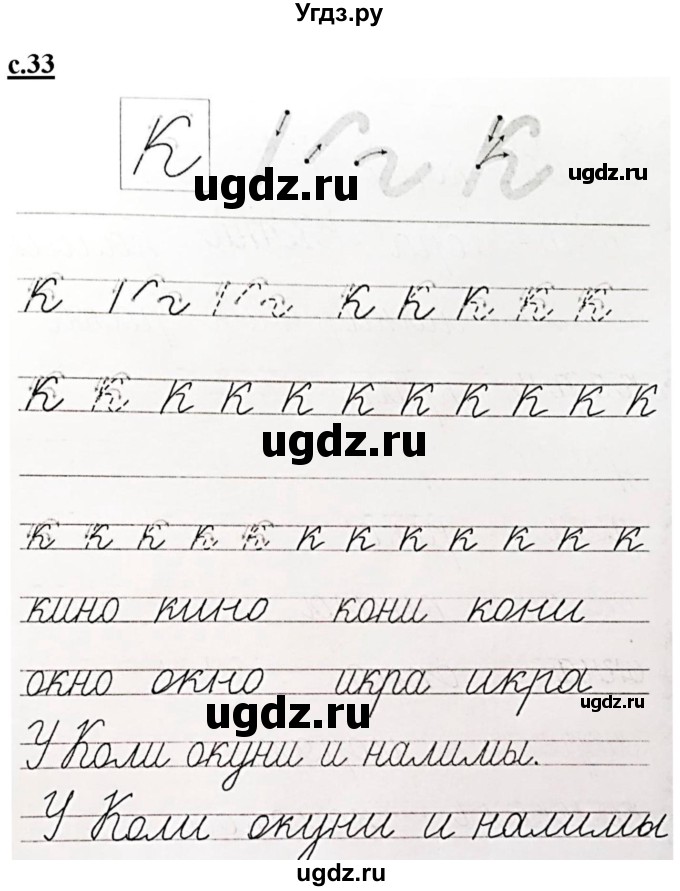 Угдз.ру
с.33
К
К
ugdz.ru
ugdz.ru
К К К К К К
К К К К К К К К К К К
ugdz.ru
к к к к к к к к к к к к
кино кино кони кони
окно окно икра икра
ugdz.ru
ugdz.ru
У Коли окуни и налимы.
У Коли окуни и налимы
ugdz.ru